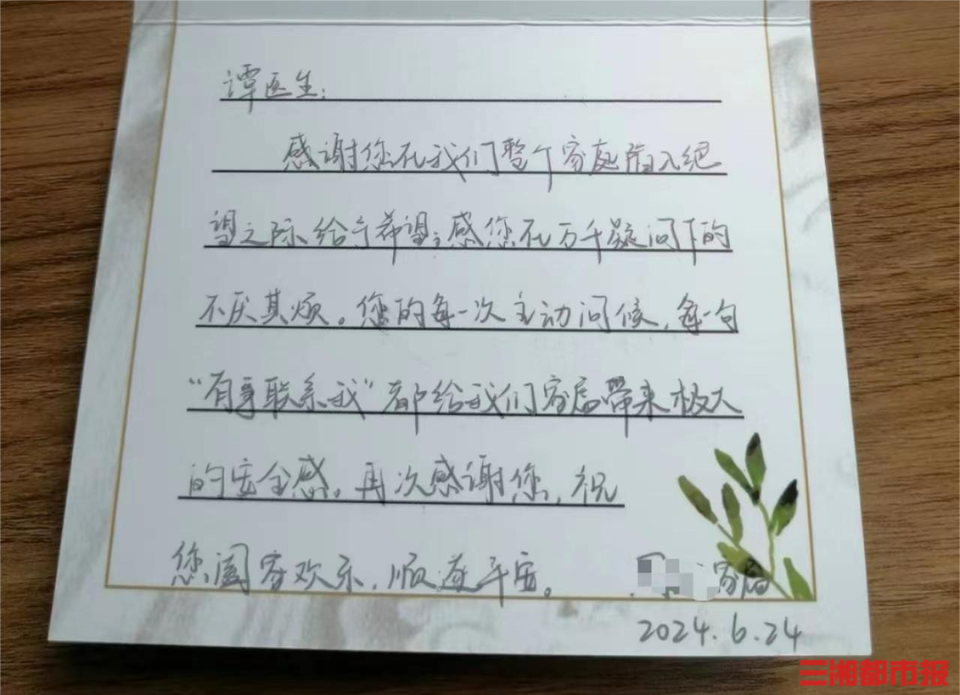 谭医生：
感谢您在我们整个家庭陷入绝
望之际给予希望；感您在万千疑问下的
不厌其烦。您的每一次主动问候，每一句
“有事联系我”都给我们家属带来极大
的安全感。再次感谢您，祝
您阖家欢乐，顺遂平安。
家属
2024.6.24
三湘都市报